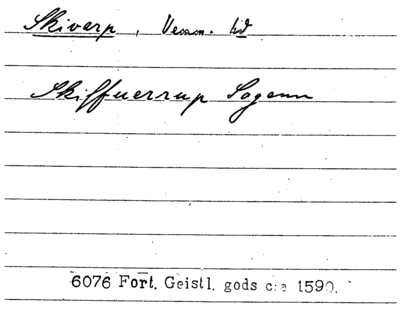 Skivarp, Vemm. hd
Skiffuerrup Sogenn
6076 Fort. Geistl. gods c:a 1590.